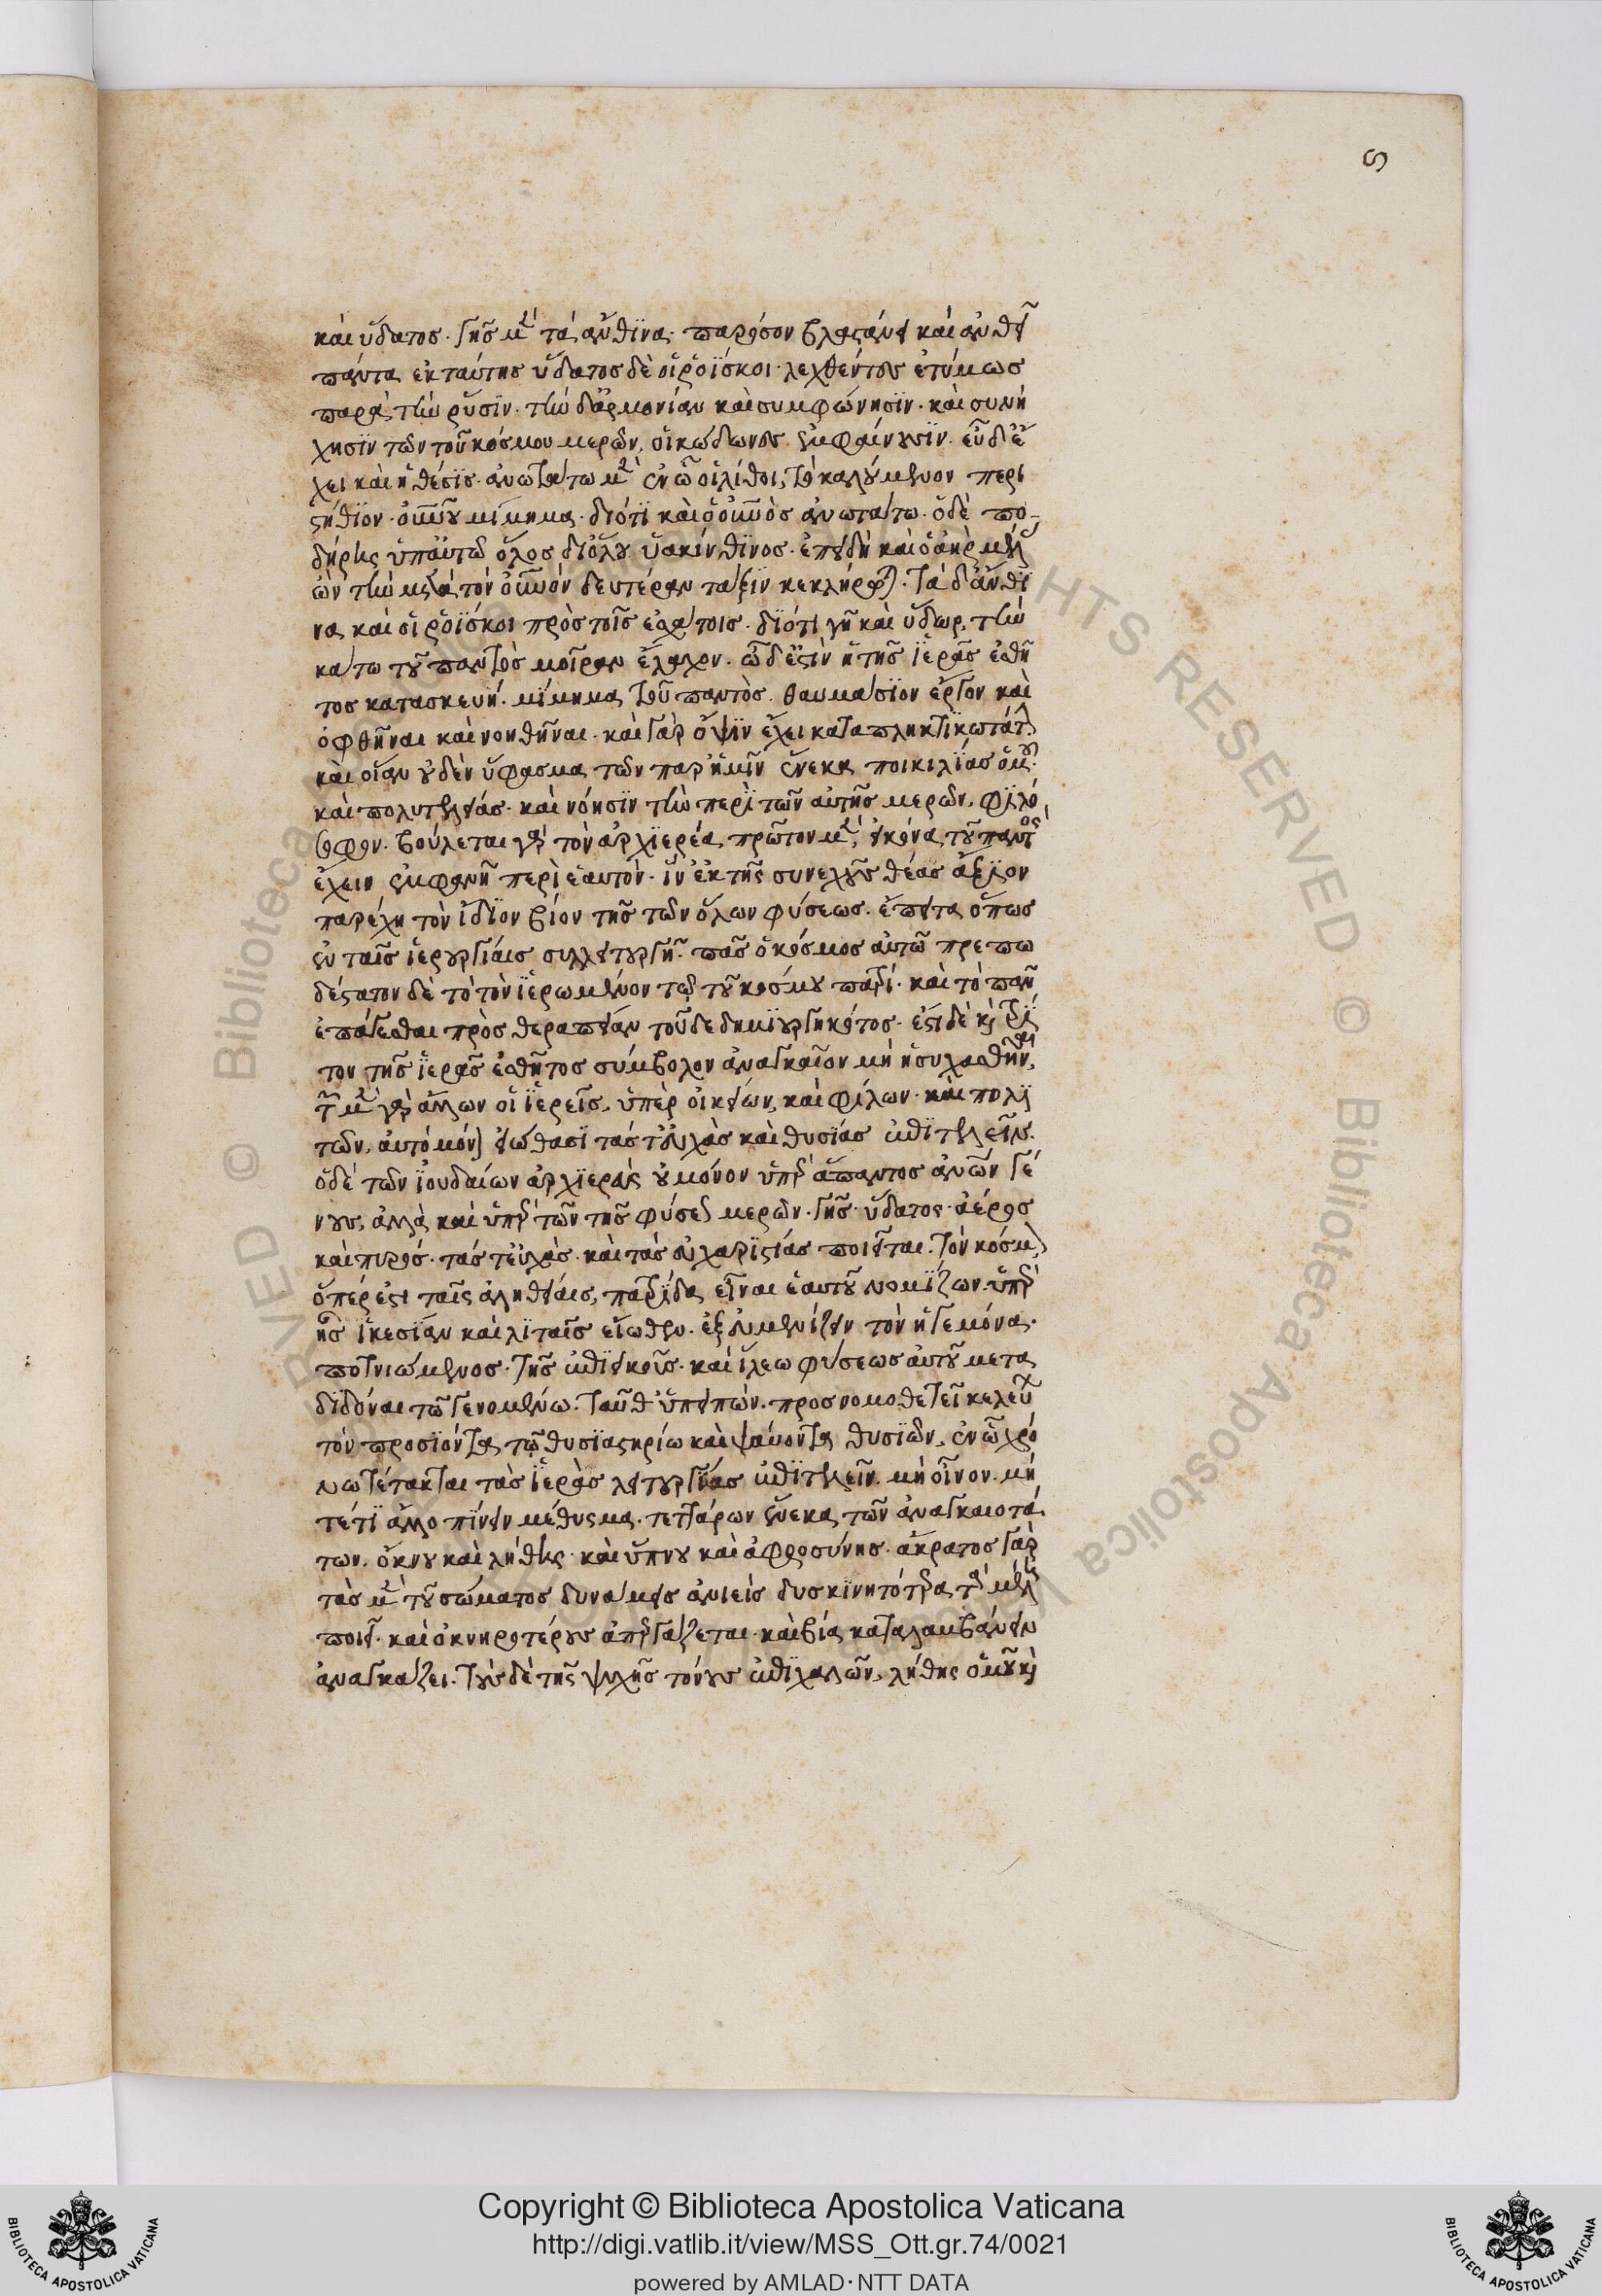 ς
καὶ ὕδατος· γῆς μὲν τὰ ἄνθινα· παρόσον βλαστάνει καὶ ἀνθεῖ
πάντα ἐκ ταύτης ὕδατος δὲ οἱ ῥοΐσκοι· λεχθέντες ἐτύμως
παρὰ τὴν ῥύσιν· τὴν δ' ἁρμονίαν καὶ συμφώνησιν· καὶ συνή
χησιν τῶν τοῦ κόσμου μερῶν, οἱ κώδωνες ἐμφαίνουσιν. εὖ δὲ ἔ
χει καὶ ἡ θέσις· ἀνωτάτω μὲν ἐν ᾧ οἱ λίθοι, τὸ καλούμενον περι
στήθιον· οὐνοῦ μίμημα· διότι καὶ ὁ οὐνὸς ἀνωτάτω· ὁ δὲ πο-
δήρης ὑπ' αὐτῷ ὅλος δι' ὅλου ὑακίνθινος· ἐπειδὴ καὶ ὁ ἀὴρ μέλας
ὢν τὴν μετὰ τὸν οὐνὸν δευτέραν τάξιν κεκλήρωται. τὰ δ' ἄνθι
να καὶ οἱ ῥοΐσκοι πρὸς τοῖς ἐσχάτοις· διότι γῆ καὶ ὕδωρ, τὴν
κάτω τοῦ παντὸς μοῖραν ἔλαχον· ὧδέ ἐστιν ἡ τῆς ἱερᾶς ἐσθῆ
τος κατασκευή· μίμημα τοῦ παντὸς· θαυμάσιον ἔργον καὶ
ὀφθῆναι καὶ νοηθῆναι· καὶ γὰρ ὄψιν ἔχει καταπληκτικωτάτην
καὶ οἵαν οὐδὲν ὕφασμα τῶν παρ' ἡμῖν ἕνεκα ποικιλίας ὁμοῦ
καὶ πολυτελείας· καὶ νόησιν τὴν περὶ τῶν αὐτῆς μερῶν, φιλό
σοφον. βούλεται γὰρ τὸν ἀρχιερέα, πρῶτον μὲν, εἰκόνα τοῦ παντὸς
ἔχειν ἐμφανῆ περὶ ἑαυτόν· ἵν' ἐκ τῆς συνεχοῦς θέας ἄξιον
παρέχῃ τὸν ἴδιον βίον τῆς τῶν ὅλων φύσεως· ἔπειτα ὅπως
ἐν ταῖς ἱερουργίαις συλλειτουργῇ πᾶς ὁ κόσμος αὐτῷ πρεπω
δέστατον δὲ τὸ τὸν ἱερωμένον τῷ τοῦ κόσμου πατρί· καὶ τὸ πᾶν
ἐπάγεσθαι πρὸς θεραπείαν τοῦ δεδημιουργηκότος· ἔστι δὲ καὶ τρί
τον τῆς ἱερᾶς ἐσθῆτος σύμβολον ἀναγκαῖον μὴ ἡσυχασθῆναι,
τῶν μὲν γὰρ ἄλλων οἱ ἱερεῖς, ὑπὲρ οἰκείων, καὶ φίλων· καὶ πολι
τῶν, αὐτὸ μόνον εἰώθασι τάς τ' εὐχὰς καὶ θυσίας ἐπιτελεῖν.
ὁ δὲ τῶν ἰουδαίων ἀρχιερεὺς οὐ μόνον ὑπὲρ ἅπαντος ἀνῶν γέ
νους, ἀλλὰ καὶ ὑπὲρ τῶν τῆς φύσεως μερῶν· γῆς· ὕδατος· ἀέρος
καὶ πυρός· τάς τ' εὐχὰς· καὶ τὰς εὐχαριστίας ποιεῖται. τὸν κόσμον
ὅπερ ἐστὶ ταῖς ἀληθείαις, πατρίδα εἶναι ἑαυτοῦ νομίζων· ὑπὲρ
ἧς ἱκεσίαν καὶ λιταῖς εἴωθεν· ἐξευμενίζειν τὸν ἡγεμόνα·
ποτνιώμενος· τῆς ἐπιεικοῦς· καὶ ἵλεω φύσεως αὐτοῦ μετα
διδόναι τῷ γενομένῳ. ταῦθ' ὑπειπών· προσνομοθετεῖ κελεύων
τὸν προσιόντα τῷ θυσιαστηρίῳ καὶ ψαύοντα θυσιῶν, ἐν ᾧ χρό
νῳ τέτακται τὰς ἱερὰς λειτουργίας ἐπιτελεῖν· μὴ οἶνον· μή
τέ τι ἄλλο πίνειν μέθυσμα· τεττάρων ἕνεκα τῶν ἀναγκαιοτά
των. ὄκνου καὶ λήθης· καὶ ὕπνου καὶ ἀφροσύνης· ἄκρατος γὰρ
τὰς μὲν τοῦ σώματος δυνάμεις ἀνιεὶς δυσκινητότερα τὰ μέλη
ποιεῖ· καὶ ὀκνηροτέρους ἀπεργάζεται· καὶ βίᾳ καταλαμβάνειν
ἀναγκάζει. τοὺς δὲ τῆς ψυχῆς τόνους ἐπιχαλῶν, λήθης ὁμοῦ καὶ
Copyright © Biblioteca Apostolica Vaticana
http://digi.vatlib.it/view/MSS_Ott.gr.74/0021
powered by AMLAD·NTT DATA